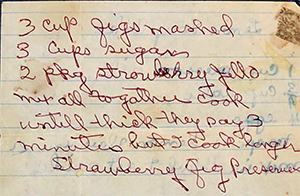 3 cup figs mashed
3 cups sugar
2 pkg strowberry jello
mix all together cook
untill thick they say 3
minutes but I cook longer
Strawberry Fig Preserves